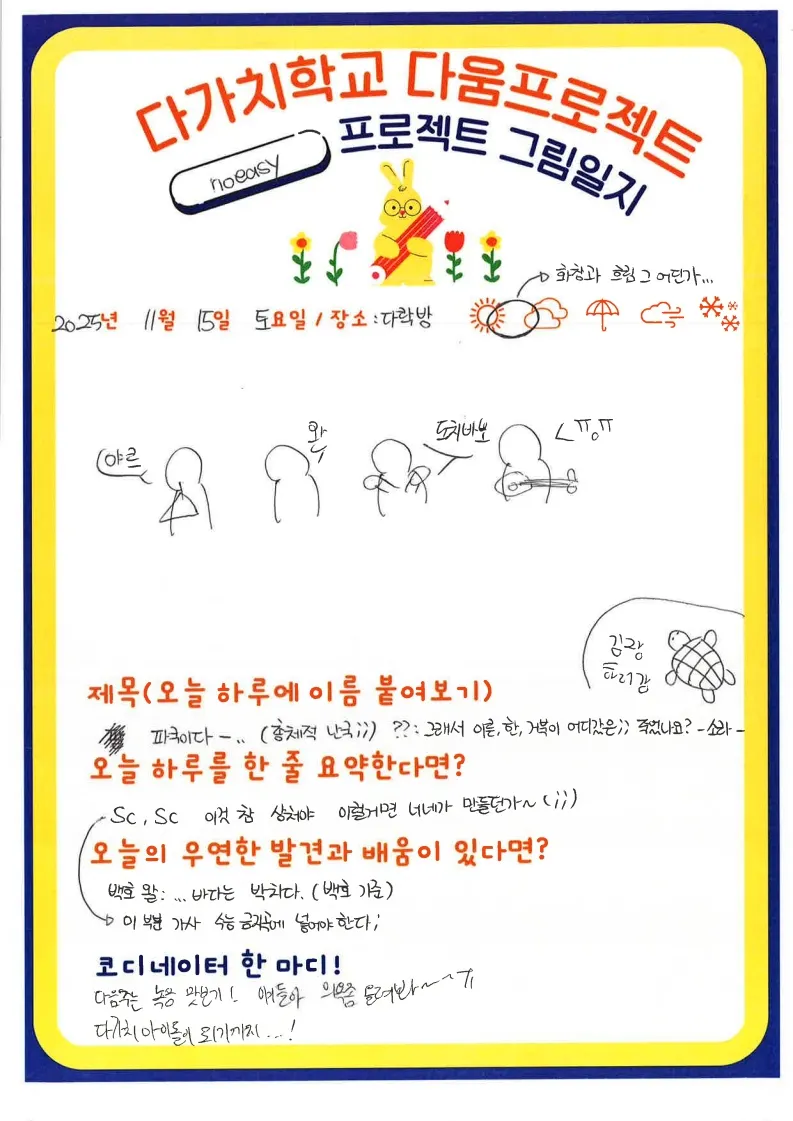 다가치학교 다움프로젝트
noeasy
프로젝트 그림일지
화창과 흐림 그 어딘가...
2025년 11월 15일 토요일 / 장소 : 다락방
야르
와
도치바보
ㅠㅇㅠ
김광
제목(오늘 하루에 이름 붙여보기)
파국이다 - .. (총체적 난국;;) ??: 그래서 이름, 한, 거북이 어디갔은;; 죽었나요? - 소라 -
오늘 하루를 한 줄 요약한다면?
Sc, Sc 이것 참 상처야 이럴거면 너네가 만들던가~ (;;)
오늘의 우연한 발견과 배움이 있다면?
백호 왈: ... 바다는 박치다. (백호 기준)
이 부분 가사 수능 금지곡에 넣어야 한다;
코디네이터 한 마디!
다음주는 녹음 맛보기! 얘들아 의욕좀 올려봐~~ㅠ
다가치 아이돌이 되기까지...!